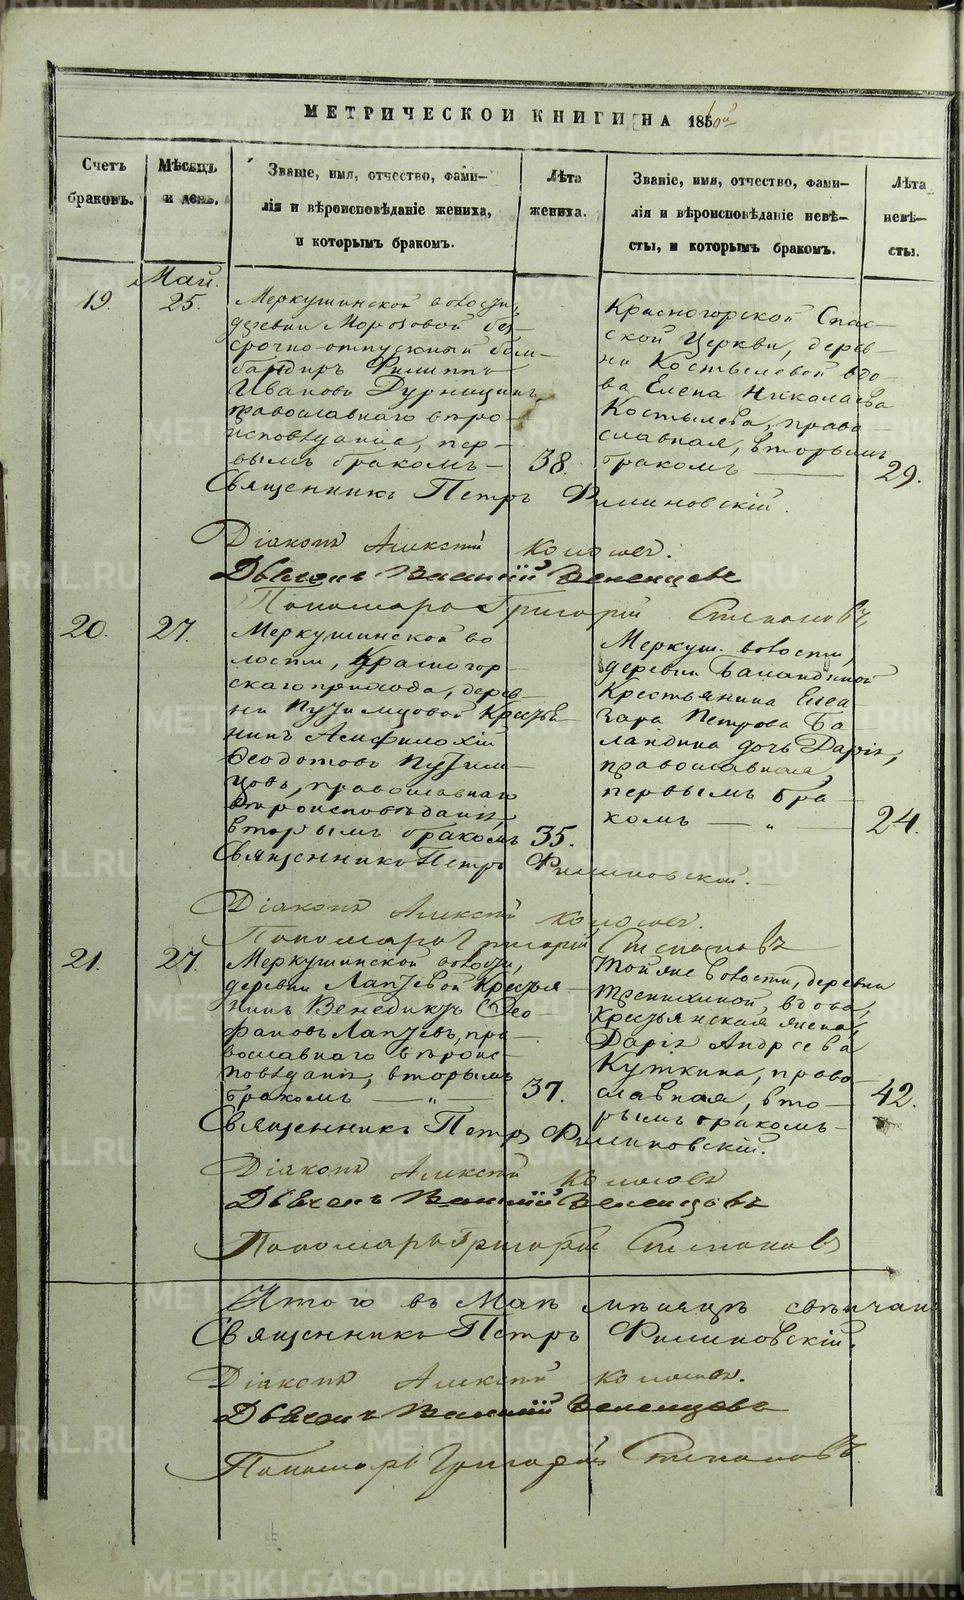 МЕТРИЧЕСКОЙ КНИГИ НА 1860й
Счетъ браковъ.
Мѣсяцъ и день.
Званіе, имя, отчество, фами-
лія и вѣроисповѣданіе жениха,
и которымъ бракомъ.
Лѣта жениха.
Званіе, имя, отчество, фами-
лія и вѣроисповѣданіе невѣ-
сты, и которымъ бракомъ.
Лѣта невѣ-
сты.
19.
Май.
25.
Меркушинской волости,
деревни Морозовой без-
срочно-отпускный бом-
бандиръ Филиппъ
Ивановъ Дурницинъ,
православнаго вѣро-
исповѣданія, пер-
вымъ бракомъ —
38.
Красногорской Спас-
ской Церкви, дерев-
ни Костылевой вдо-
ва Елена Николаева
Костылева, право-
славная, вторымъ
бракомъ —
29.
Священникъ Петръ Филиновскій.
Діаконъ Алексѣй
Дьячекъ Василій
Пономарь Григорій Степановъ
20.
27.
Меркушинской во
лости, Красногор-
скаго прихода, дерев-
ни Пузимцовой Кресть
нинъ Амфилохій
Ѳеодотовъ Пузим-
цовъ, православнаго
вѣроисповѣданія,
вторымъ бракомъ
35.
Меркуш. волости,
деревни Баландиной
Крестьянина Елеа
зара Петрова Ба
ландина дочь Дарія,
православная,
первымъ бра-
комъ — „ —
24.
Священникъ Петръ Филиновскій.
Діаконъ Алексѣй
Пономарь Григорій Степановъ
21.
27.
Меркушинской волости,
деревни Лапчевой Кресья-
нинъ Венедиктъ Ѳео-
фановъ Лапчевъ, пра-
вославнаго вѣроис-
повѣданія, вторымъ
бракомъ — „ —
37.
Той же волости, деревни
вдова,
Крестьянская жена,
Дарія Андреева
Куткина, право-
славная, вто-
рымъ бракомъ —
42.
Священникъ Петръ Филиновскій.
Діаконъ Алексѣй
Дьячекъ Василій
Пономарь Григорій Степановъ
Итого въ Маѣ мѣсяцѣ свѣнчан
Священникъ Петръ Филиновскій.
Діаконъ Алексѣй
Дьячекъ Василій
Пономарь Григорій Степановъ.
METRIKI.GASO-URAL.RU